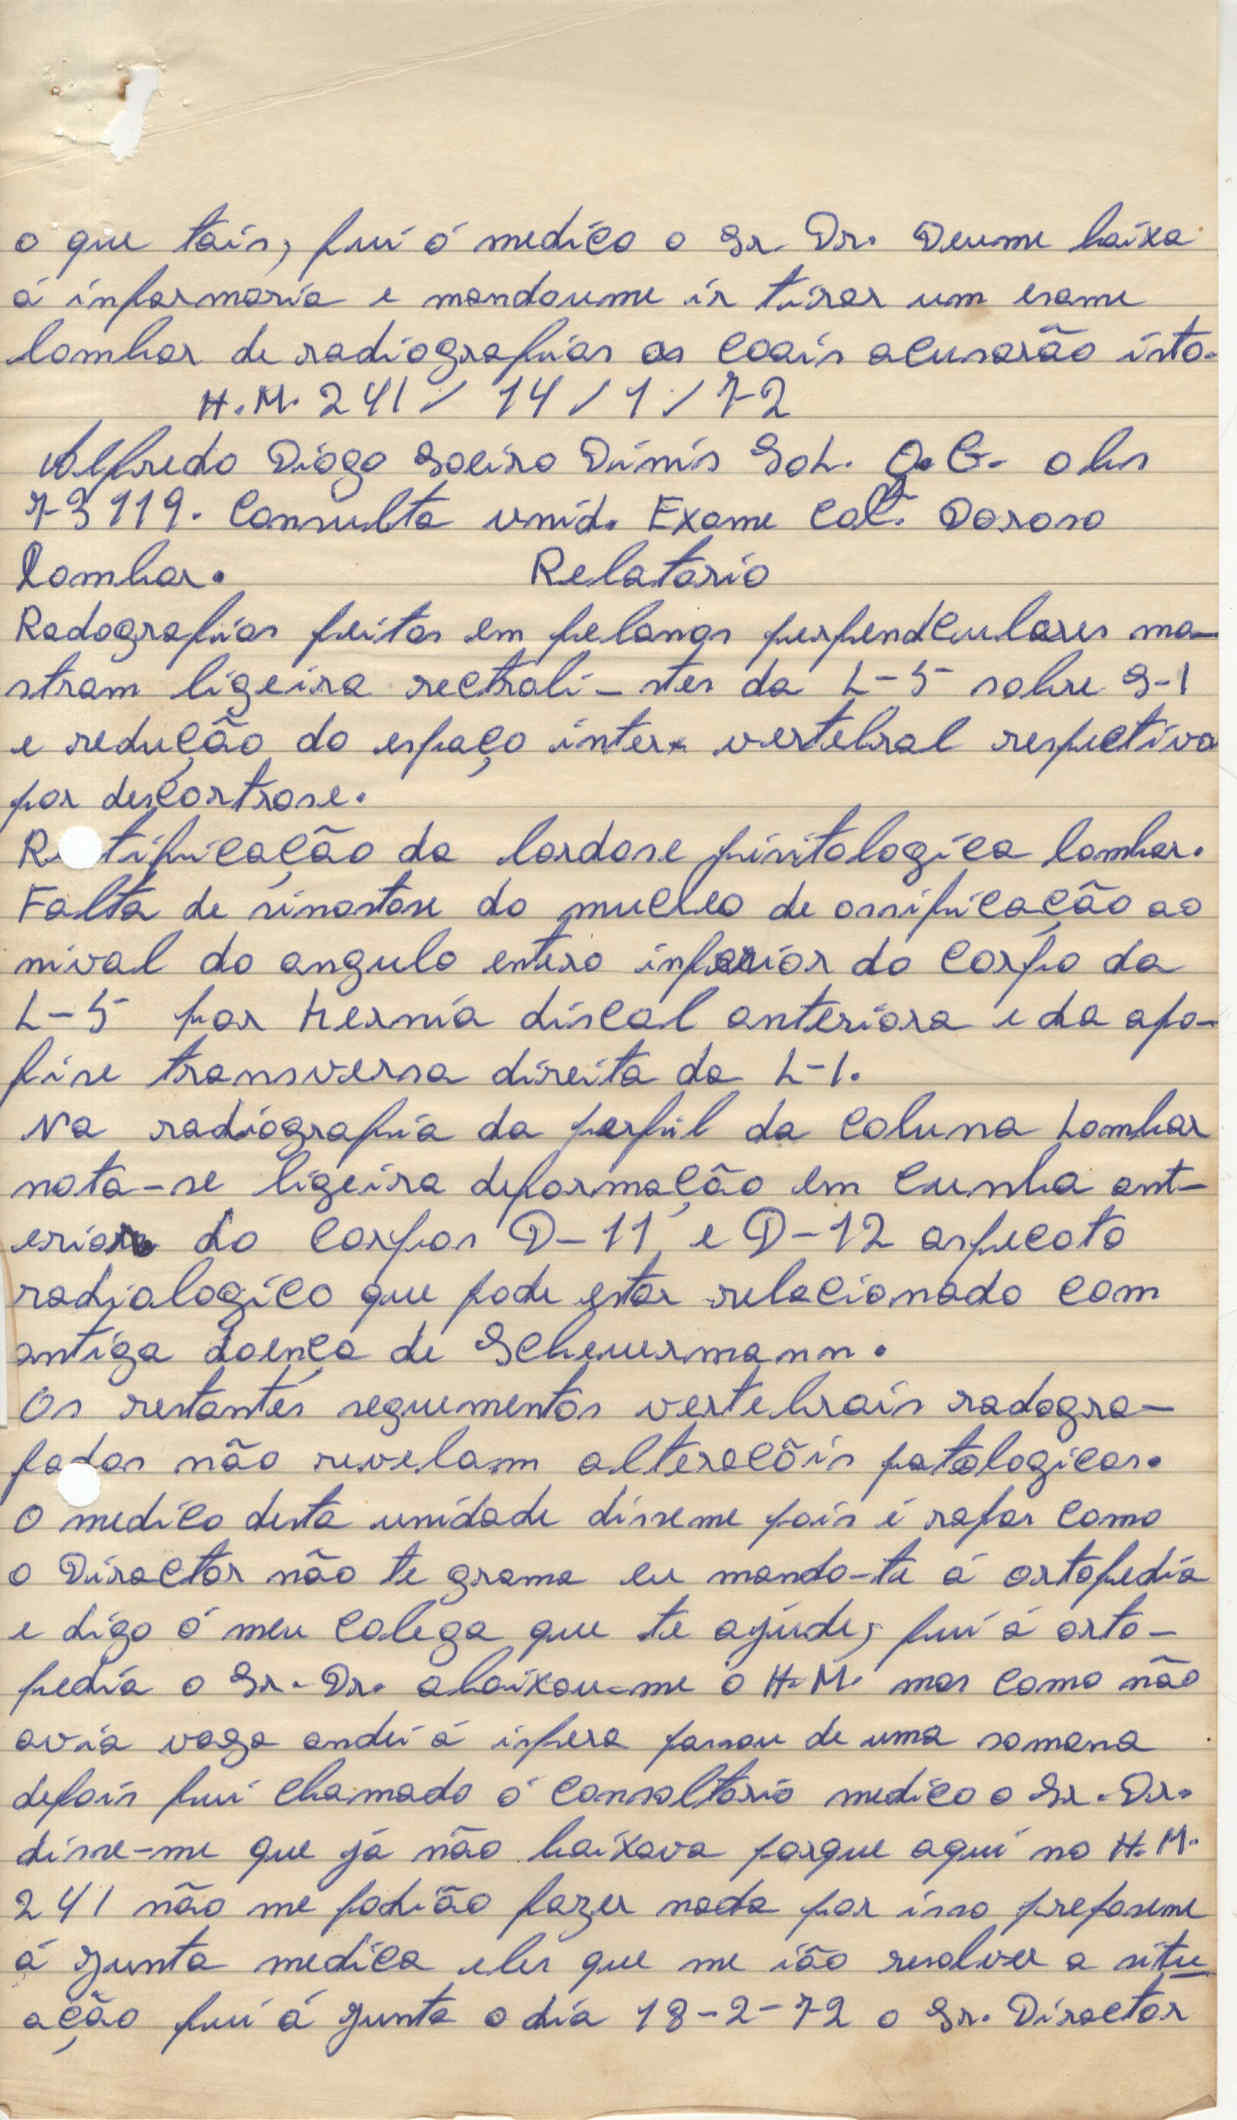 o que tais, fui ó medico o Sr. Dr. Deume baixa
á infarmaria e mandoume ir tirar um esame
lombar de radiografias as coais acusarão isto.
H.M. 241 / 14 / 1 / 72
Alfredo Diogo Soeiro Dinis Sol. Q.G. obs
73119. Consulta unid. Exame Col. Dorsso
Lombar. Relatorio
Radografias feitas em pelanos perpendculares mo-
stram ligeira rectroli-stes da L-5 sobre S-1
e redução do espaço inter vertebral respectivo
por descortrose.
R tificação da lordose fisitologica lombar.
Falta de sinostose do nucleo de ossificação ao
nival do angulo entero inferior do corpo da
L-5 por Hernia discal anteriora e da apo-
fise transversa direita da L-1.
Na radiografia da perfil da coluna Lombar
nota-se ligeira deformação em cunha ant-
erior do corpos D-11 e D-12 aspecoto
radialogico que pode estar relacionado com
antiga doença de Scheuermann.
Os restantes seguementos vertebrais radogra-
fados não revelam alteracõis patologicas.
O medico desta unidade disseme pois é rapas como
o Diractor não te grama eu mando-te á ortopedia
e digo ó meu colega que te ajude, fui á orto-
pedia o Sr. Dr. abaixou-me ó H.M. mas como não
avia vaga andei á ispera passou de uma somana
depois fui chamado ó consoltorio medico o Sr. Dr.
disse-me que já não baixava porque aqui no H.M.
241 não me podião fazer nada por isso preposeme
á junta medica eles que me ião resolver a situ
ação fui á junta o dia 18-2-72 o Sr. Diractor